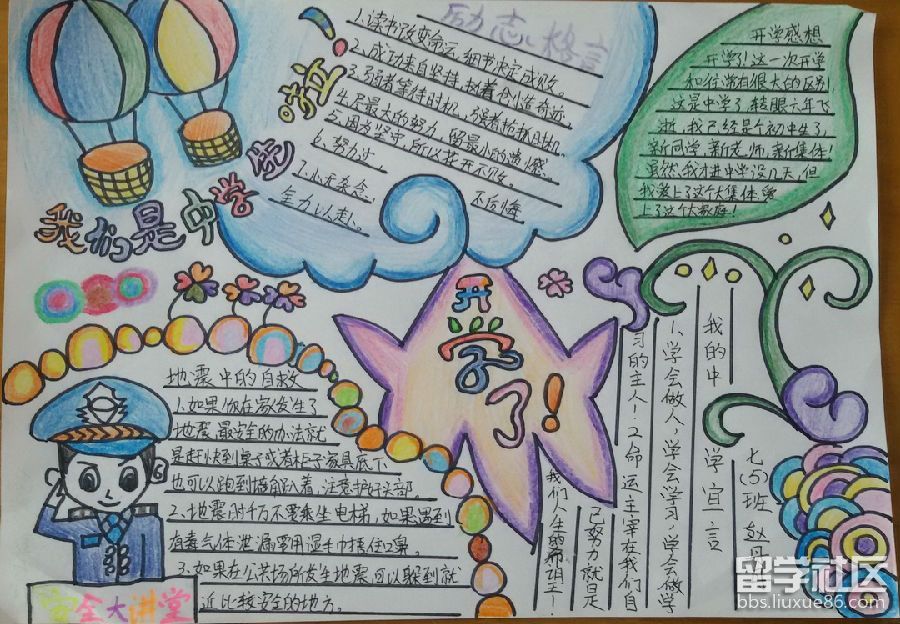 我们是中学生啦！
励志格言
1.读书改变命运，细节决定成败。
2.成功来自坚持，执着创造奇迹。
3.弱者等待时机，强者创造时机。
4.尽最大的努力，留最小的遗憾。
5.因为坚守，所以花开不败。
6.努力过
不后悔
7.心无杂念
全力以赴！
开学感想
开学了！这一次开学
和往常有很大的区别
这是中学了，转眼六年飞
逝，我已经是个初中生了，
新同学，新老师，新集体！
虽然，我才进中学没几天，但
我爱上了这个大集体，爱
上了这个大家庭！
开学了！
地震中的自救
1.如果你在家发生了
地震，最安全的办法就
是赶快到桌子或者柜子家具底下
也可以跑到墙角趴着，注意护好头部。
2.地震时千万不要乘坐电梯，如果遇到
有毒气体泄漏要用湿毛巾捂住口鼻。
3.如果在公共场所发生地震，可以躲到就
近比较安全的地方。
安全大讲堂
我的中学宣言
1、学会做人，学会学习，学会做学
习的主人！2、命运主宰在我们自
己努力就是
我们人生的
七（5）班
留学社区
bbs.liuxue86.com